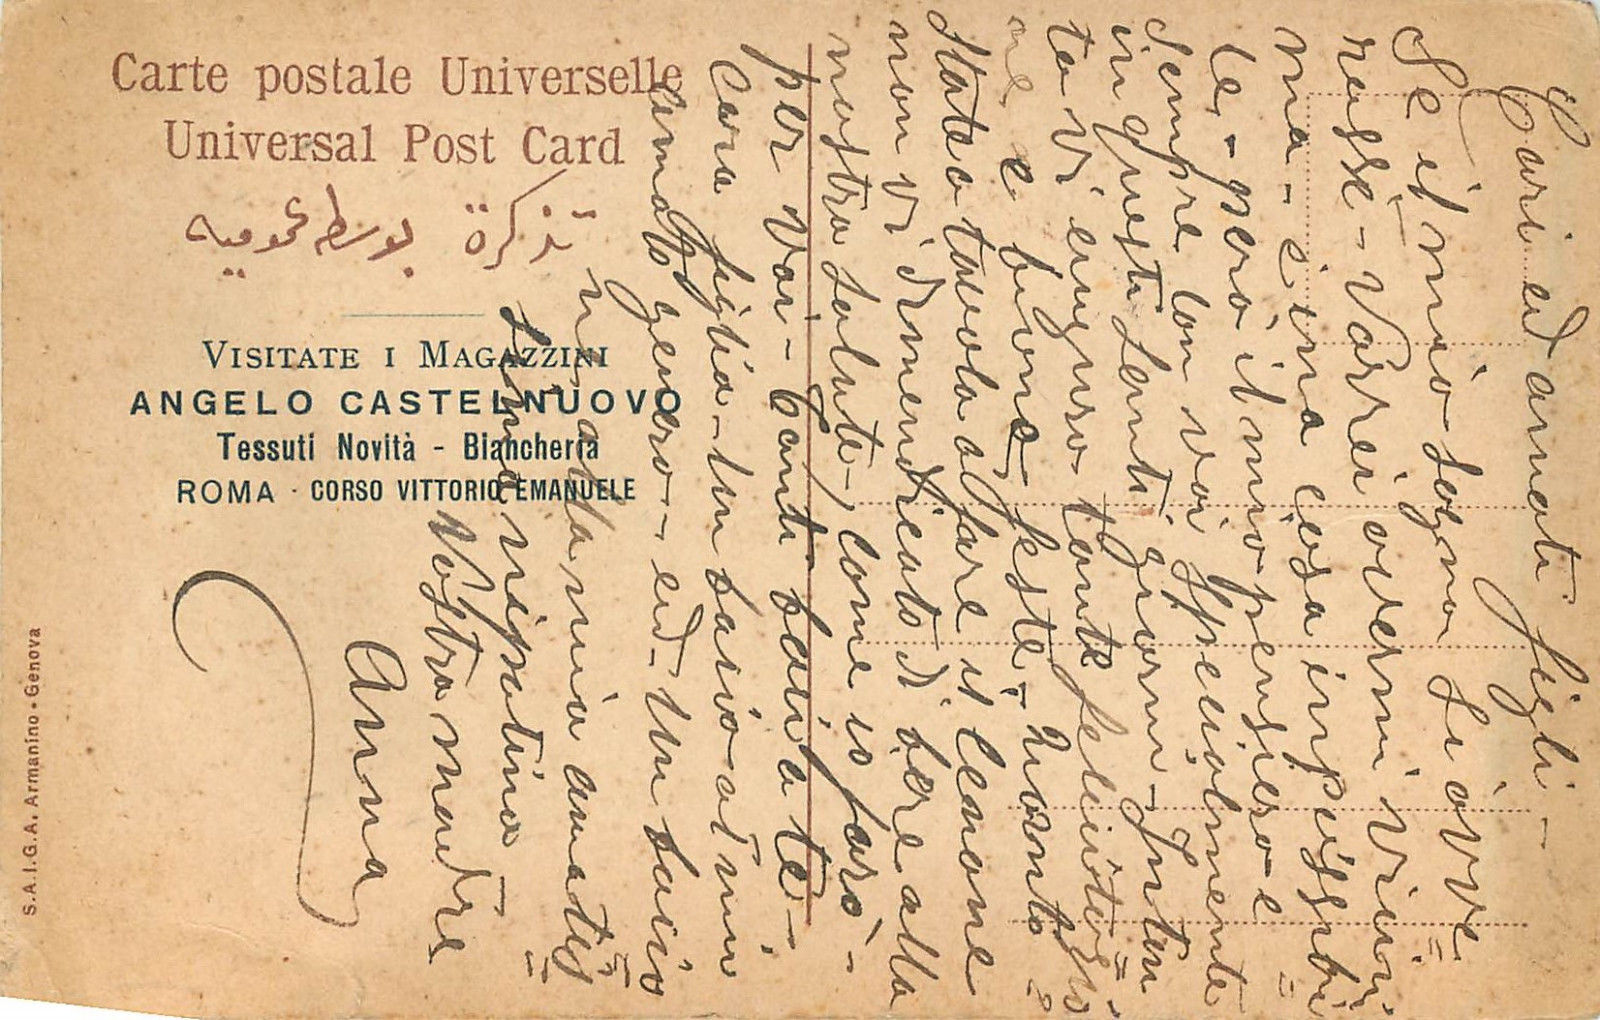 Carte postale Universelle
Universal Post Card
تذكرة بوسطه عموميه
VISITATE I MAGAZZINI
ANGELO CASTELNUOVO
Tessuti Novità - Biancheria
ROMA · CORSO VITTORIO EMANUELE
S.A.I.G.A. Armanino - Genova
Cari ed amati figli -
Se il mio sogno si avve=
rasse - Vorrei avermi vicini
ma - è una cosa impossibi=
le - però il mio pensiero è
sempre con voi specialmente
in questi santi giorni - Intan=
to vi auguro tante felicitazio
ne e buone feste - Quanto=
state a tavola a fare il
non vi dimendicato di bere alla
nostra salute, come io farò -
per voi - tanti baci a te -
cara figlia - un bacio al mio
amato genero - ed - un bacio
alla mia amatis=
sima nipotina
Vostra madre
Anna